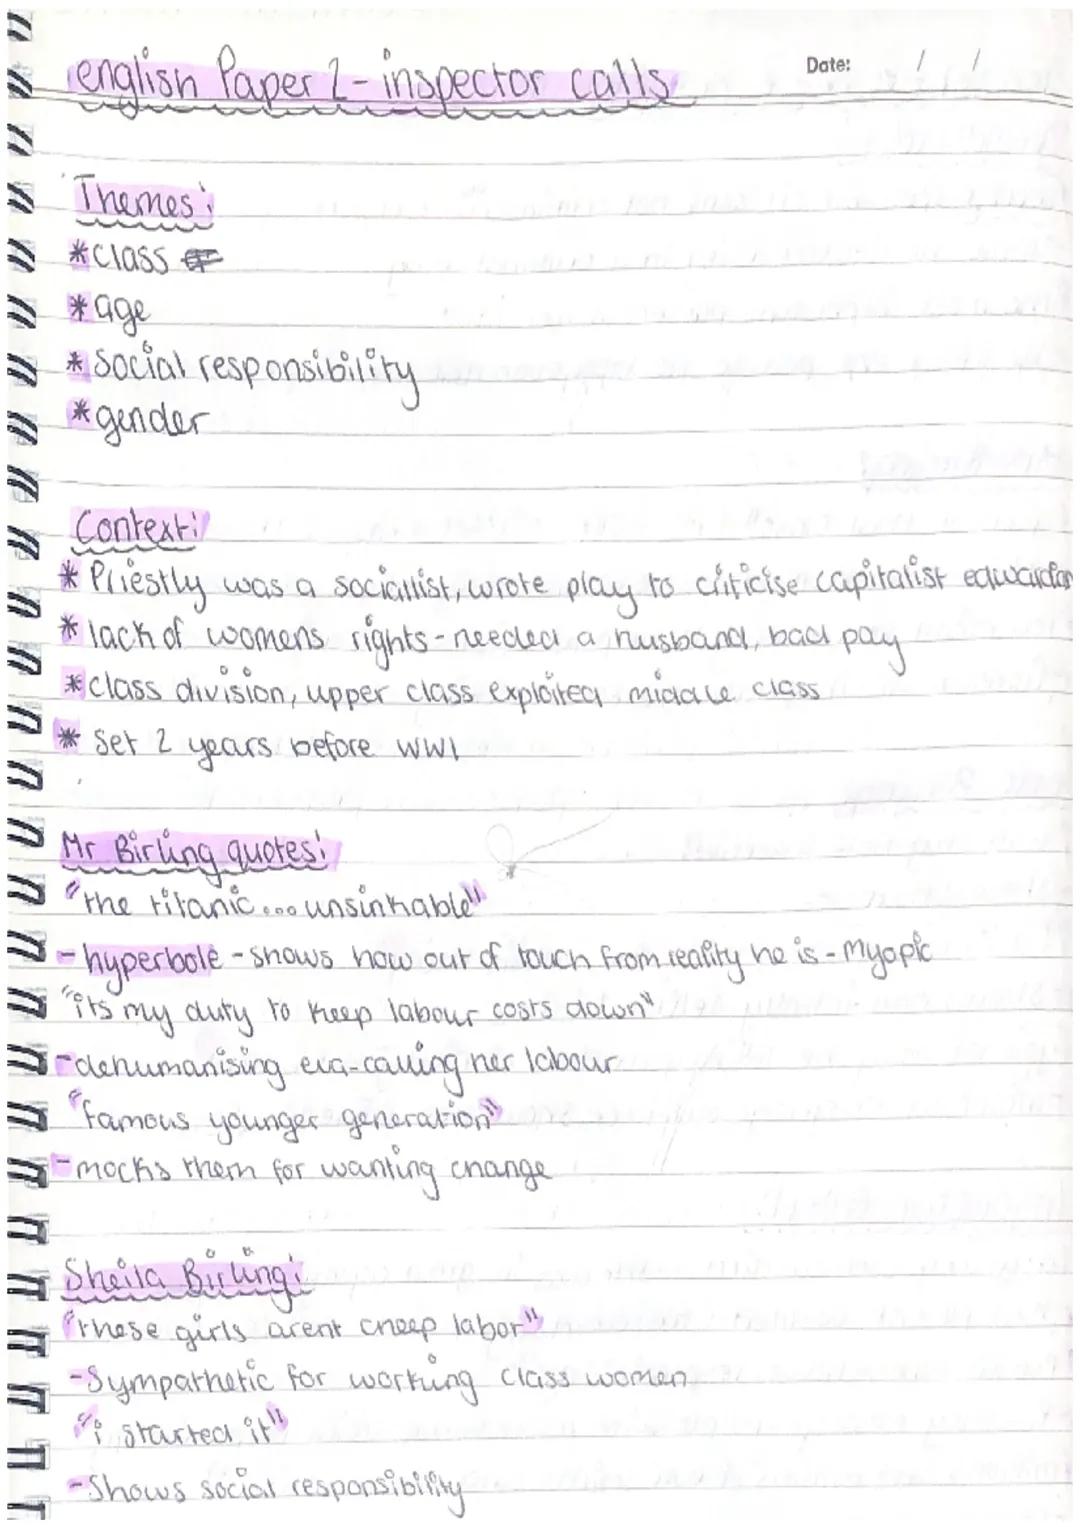 english Paper 2 - inspector calls
Date: / /
Themes:
*class
*age
*Social responsibility
*gender
Context:
* Priestly was a sociallist, wrote play to criticise capitalist edwardan
* lack of womens rights - needed a husband, bad pay
* class division, upper class exploited middle class
* Set 2 years before WW1
Mr Birling quotes:
"the titanic... unsinkable"
- hyperbole - shows how out of touch from reality he is - Myopic
"its my duty to keep labour costs down"
- dehumanising eva - calling her labour
"famous younger generation"
- mocks them for wanting change
Sheila Birling:
"these girls arent cheep labor"
- Sympathetic for working class women
"i started it"
- Shows social responsibility